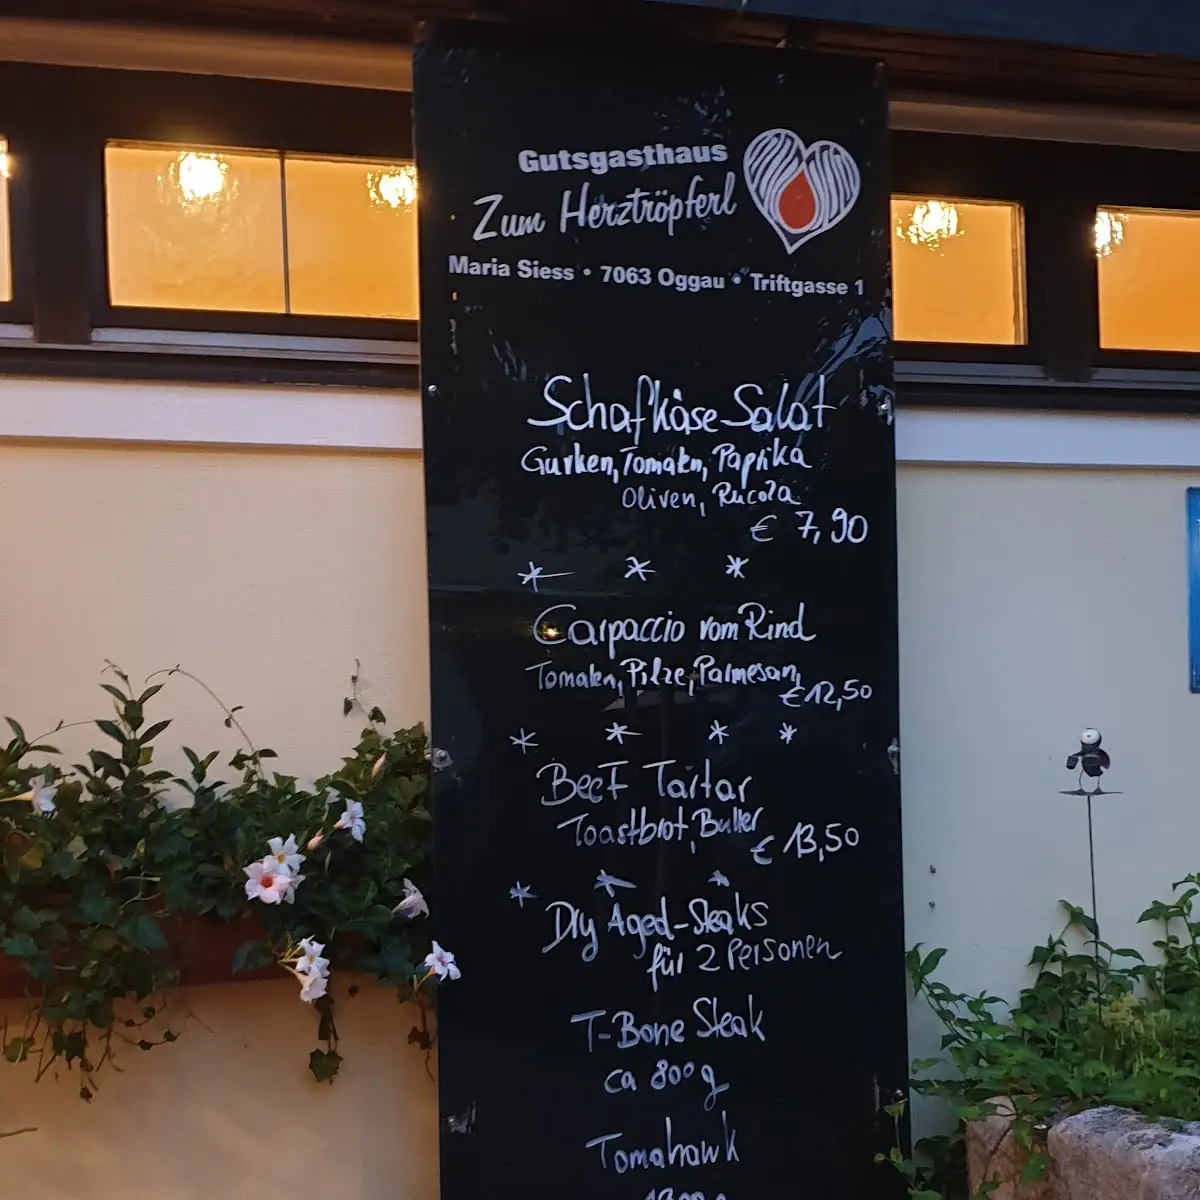 Gutsgasthaus
Zum Herztröpferl
Maria Siess • 7063 Oggau • Triftgasse 1
Schafkäse-Salat
Gurken, Tomaten, Paprika
Oliven, Rucola
€ 7,90
* * *
Carpaccio vom Rind
Tomaten, Pilze, Parmesan,
€ 12,50
* * * *
Beef Tartar
Toastbrot, Butter
€ 13,50
* * *
Dry Aged-Steaks
für 2 Personen
T-Bone Steak
ca 800g
Tomahawk